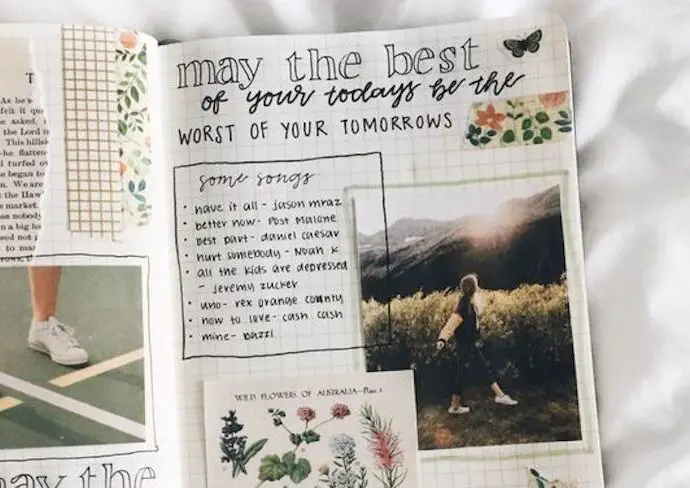 As he
felt it
asked,
the Lord
This
he flatten-
turfed
began to
We are
the
market.
nobody
a big
not
to
may the best
of your todays be the
WORST OF YOUR TOMORROWS
some songs
• have it all - jason mraz
• better now - Post Malone
• best part - daniel caesar
• hurt somebody - Noah K
• all the kids are depressed
- jeremy zucker
• uno - rex orange county
• how to love - cash cash
• mine - bazzi
WILD FLOWERS OF AUSTRALIA—Plate 1
may the